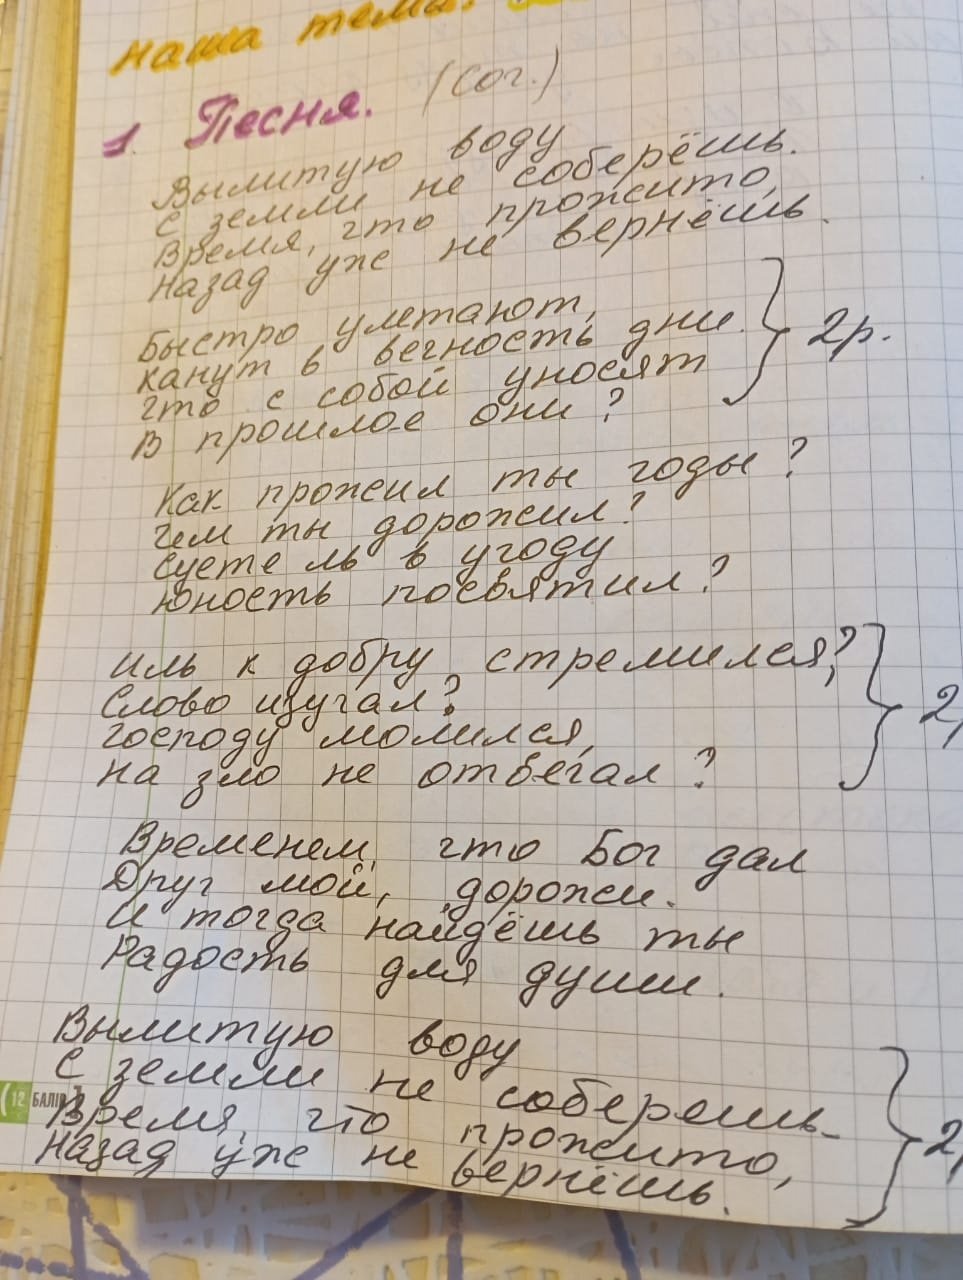 наша тема:
1. Песня. (Сог.)
Вылитую воду
с земли не соберёшь.
Время, что прожито,
назад уже не вернёшь.
Быстро улетают,
канут в вечность дни.
что с собой уносят
В прошлое они?
} 2р.
Как прожил ты годы?
Чем ты дорожил?
Суете ль в угоду
юность посвятил?
иль к добру стремился?,
Слово изучал?
господу молился,
на зло не отвечал?
} 2
Временем, что Бог дал
Друг мой, дорожи.
И тогда найдёшь ты
Радость для души.
Вылитую воду
с земли не соберешь
Время, что прожито,
назад уже не вернёшь.
} 2
12 БАЛІВ